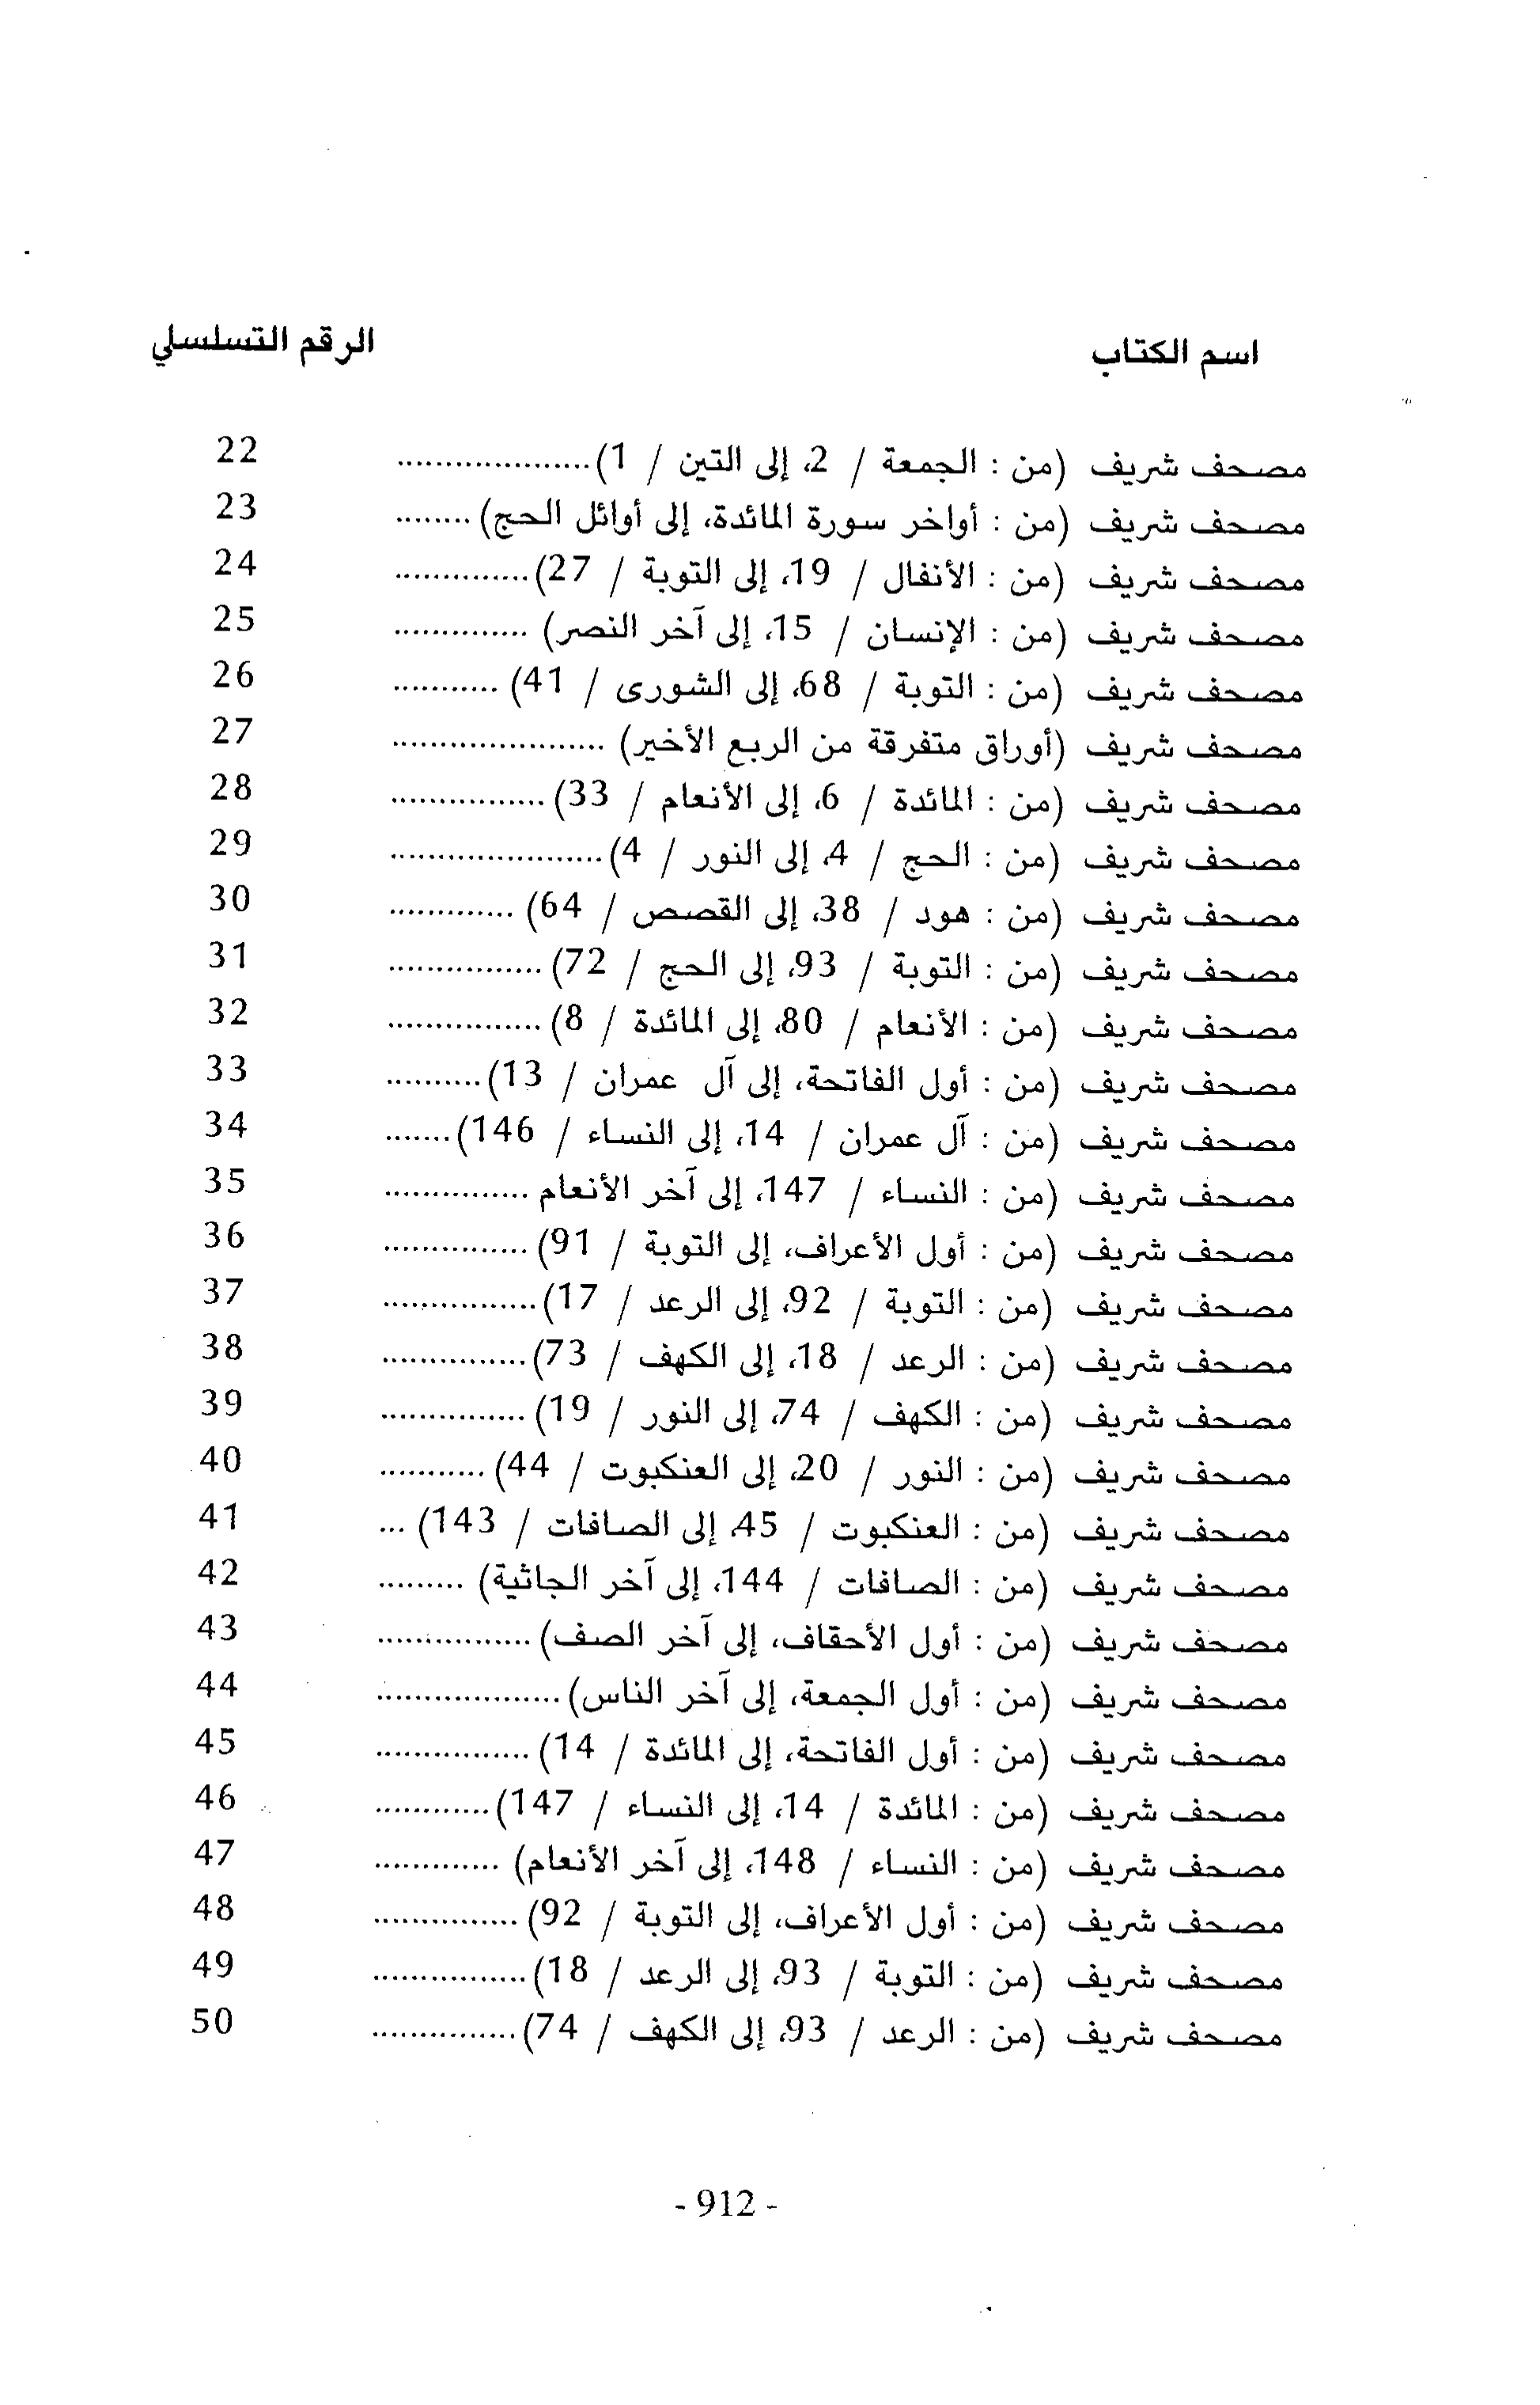 اسم الكتاب الرقم التسلسلي
مصحف شريف (من : الجمعة / 2، إلى التين / 1)..................... 22
مصحف شريف (من : أواخر سورة المائدة، إلى أوائل الحج)......... 23
مصحف شريف (من : الأنفال / 19، إلى التوبة / 27)............... 24
مصحف شريف (من : الإنسان / 15، إلى آخر النصر) ............... 25
مصحف شريف (من : التوبة / 68، إلى الشورى / 41) ............ 26
مصحف شريف (أوراق متفرقة من الربع الأخير) ....................... 27
مصحف شريف (من : المائدة / 6، إلى الأنعام / 33)................. 28
مصحف شريف (من : الحج / 4، إلى النور / 4)....................... 29
مصحف شريف (من : هود / 38، إلى القصص / 64) .............. 30
مصحف شريف (من : التوبة / 93، إلى الحج / 72)................. 31
مصحف شريف (من : الأنعام / 80، إلى المائدة / 8)................. 32
مصحف شريف (من : أول الفاتحة، إلى آل عمران / 13)........... 33
مصحف شريف (من : آل عمران / 14، إلى النساء / 146)........ 34
مصحف شريف (من : النساء / 147، إلى آخر الأنعام ................ 35
مصحف شريف (من : أول الأعراف، إلى التوبة / 91)................ 36
مصحف شريف (من : التوبة / 92، إلى الرعد / 17)................. 37
مصحف شريف (من : الرعد / 18، إلى الكهف / 73)................ 38
مصحف شريف (من : الكهف / 74، إلى النور / 19)................ 39
مصحف شريف (من : النور / 20، إلى العنكبوت / 44)............ 40
مصحف شريف (من : العنكبوت / 45، إلى الصافات / 143) ... 41
مصحف شريف (من : الصافات / 144، إلى آخر الجاثية) .......... 42
مصحف شريف (من : أول الأحقاف، إلى آخر الصف)................. 43
مصحف شريف (من : أول الجمعة، إلى آخر الناس).................... 44
مصحف شريف (من : أول الفاتحة، إلى المائدة / 14)................. 45
مصحف شريف (من : المائدة / 14، إلى النساء / 147)............. 46
مصحف شريف (من : النساء / 148، إلى آخر الأنعام) .............. 47
مصحف شريف (من : أول الأعراف، إلى التوبة / 92)................ 48
مصحف شريف (من : التوبة / 93، إلى الرعد / 18)................. 49
مصحف شريف (من : الرعد / 93، إلى الكهف / 74)................ 50
- 912 -